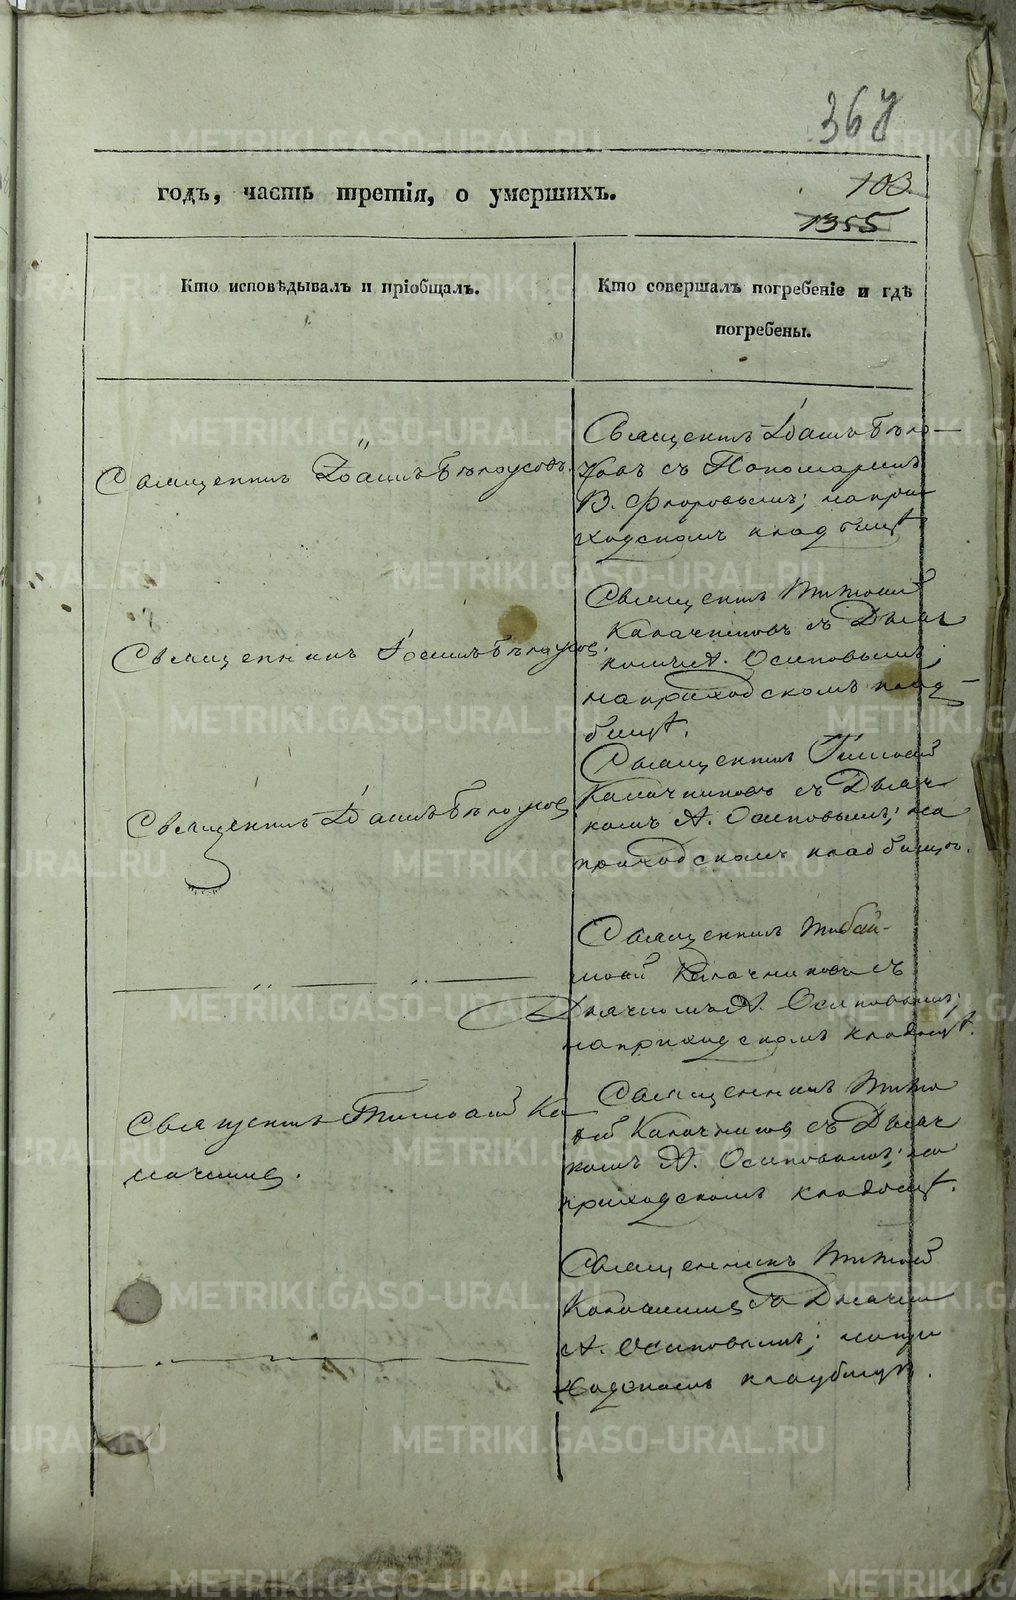 367
годъ, часть третія, о умершихъ.
103.
1355
Кто исповѣдывалъ и пріобщалъ.
Кто совершалъ погребеніе и гдѣ
погребены.
Священникъ Іоаннъ Бѣлоусовъ.
Священникъ Іоаннъ Бѣло-
усовъ съ Пономаремъ
В. Флоровымъ; на при
ходскомъ кладбищѣ
Священникъ Іоаннъ Бѣлоусов.
Священникъ Тимофей
Калачниковъ съ Дьяч
комъ А. Осиповымъ;
на приходскомъ клад-
бищѣ.
Священникъ Іоаннъ Бѣлоусов
Священникъ Тимофей
Калачниковъ съ Дьяч
комъ А. Осиповымъ; на
приходскомъ кладбищѣ.
Священникъ
Калачниковъ съ
Дьячкомъ А. Осиповымъ;
на приходскомъ кладбищѣ.
Священникъ Тимофей Ка
лачников.
Священникъ Тимо
фей Калачников съ Дьяч
комъ А. Осиповымъ; на
приходскомъ кладбищѣ.
Священникъ Тимофей
Калачников съ Дьячком
А. Осиповымъ; на при
ходском кладбищѣ.
METRIKI.GASO-URAL.RU